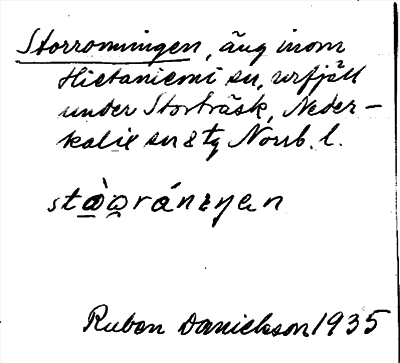 Storromningen, äng inom
Hietaniemi sn, urfjäll
under Storträsk, Neder-
kalix sn & tg Norrb. l.
Ruben Danielsson 1935